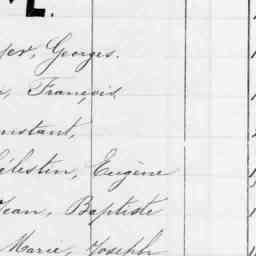 L.
Georges.
François
Constant,
Célestin, Eugène
Jean, Baptiste
Marie, Joseph